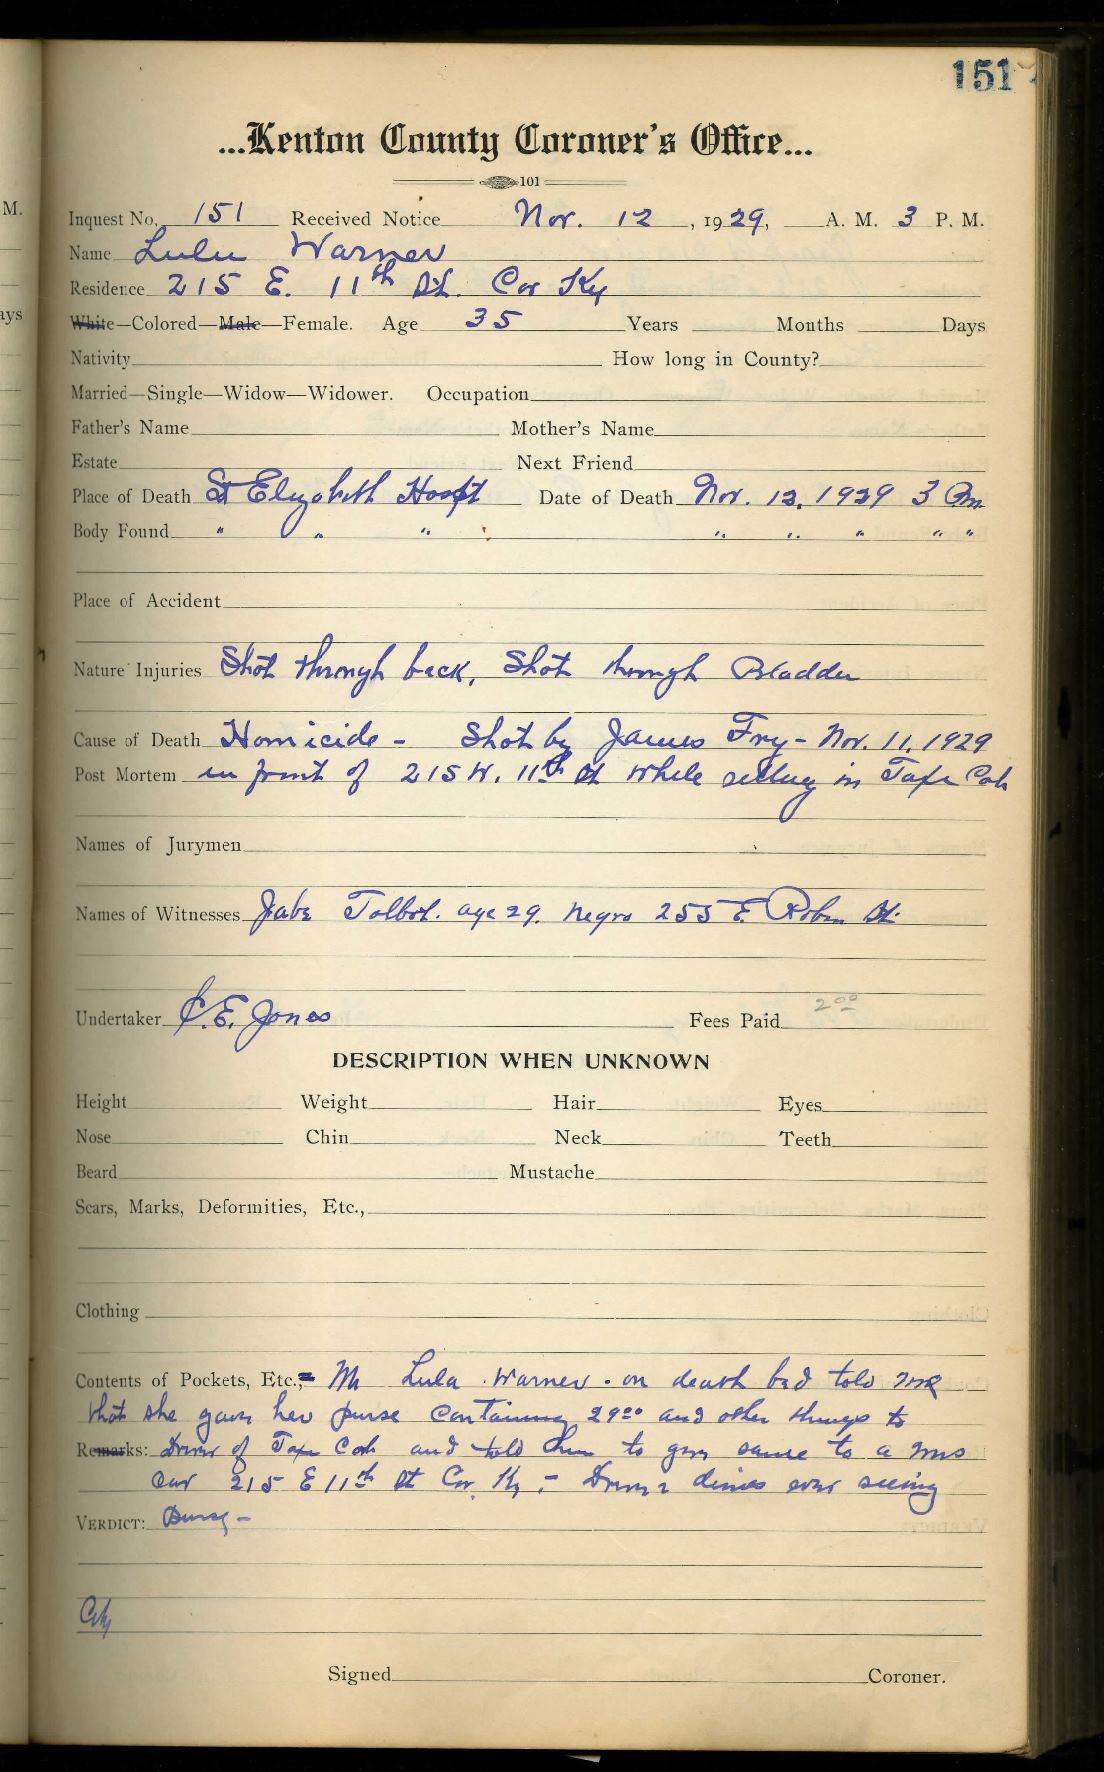 M.
ays
151
...Kenton County Coroner's Office...
101
Inquest No. 151 Received Notice Nov. 12, 1929, A. M. 3 P. M.
Name Lulu Warner
Residence 215 E. 11th St. Cov Ky
White—Colored—Male—Female. Age 35 Years Months Days
Nativity How long in County?
Married—Single—Widow—Widower. Occupation
Father's Name Mother's Name
Estate Next Friend
Place of Death St Elizabeth Hospt Date of Death Nov. 12, 1929 3 Pm.
Body Found " " " " " " " "
Place of Accident
Nature Injuries Shot through back, Shot through Bladder
Cause of Death Homicide - Shot by James Fry - Nov. 11, 1929
Post Mortem in front of 215 W. 11th St while sitting in Taxi Cab
Names of Jurymen
Names of Witnesses Jabe Tolbot. age 29. Negro 255 E. Robin St.
Undertaker C. E. Jones Fees Paid 2 00
DESCRIPTION WHEN UNKNOWN
Height Weight Hair Eyes
Nose Chin Neck Teeth
Beard Mustache
Scars, Marks, Deformities, Etc.,
Clothing
Contents of Pockets, Etc., Lula Warner - on death bed told me
that she gave her purse containing 29 00 and other things to
Remarks: Driver of Taxi Cab and told him to give same to a Mrs
215 E 11th St Cov. Ky. - Driver denies ever seeing
VERDICT: Purse -
Signed Coroner.